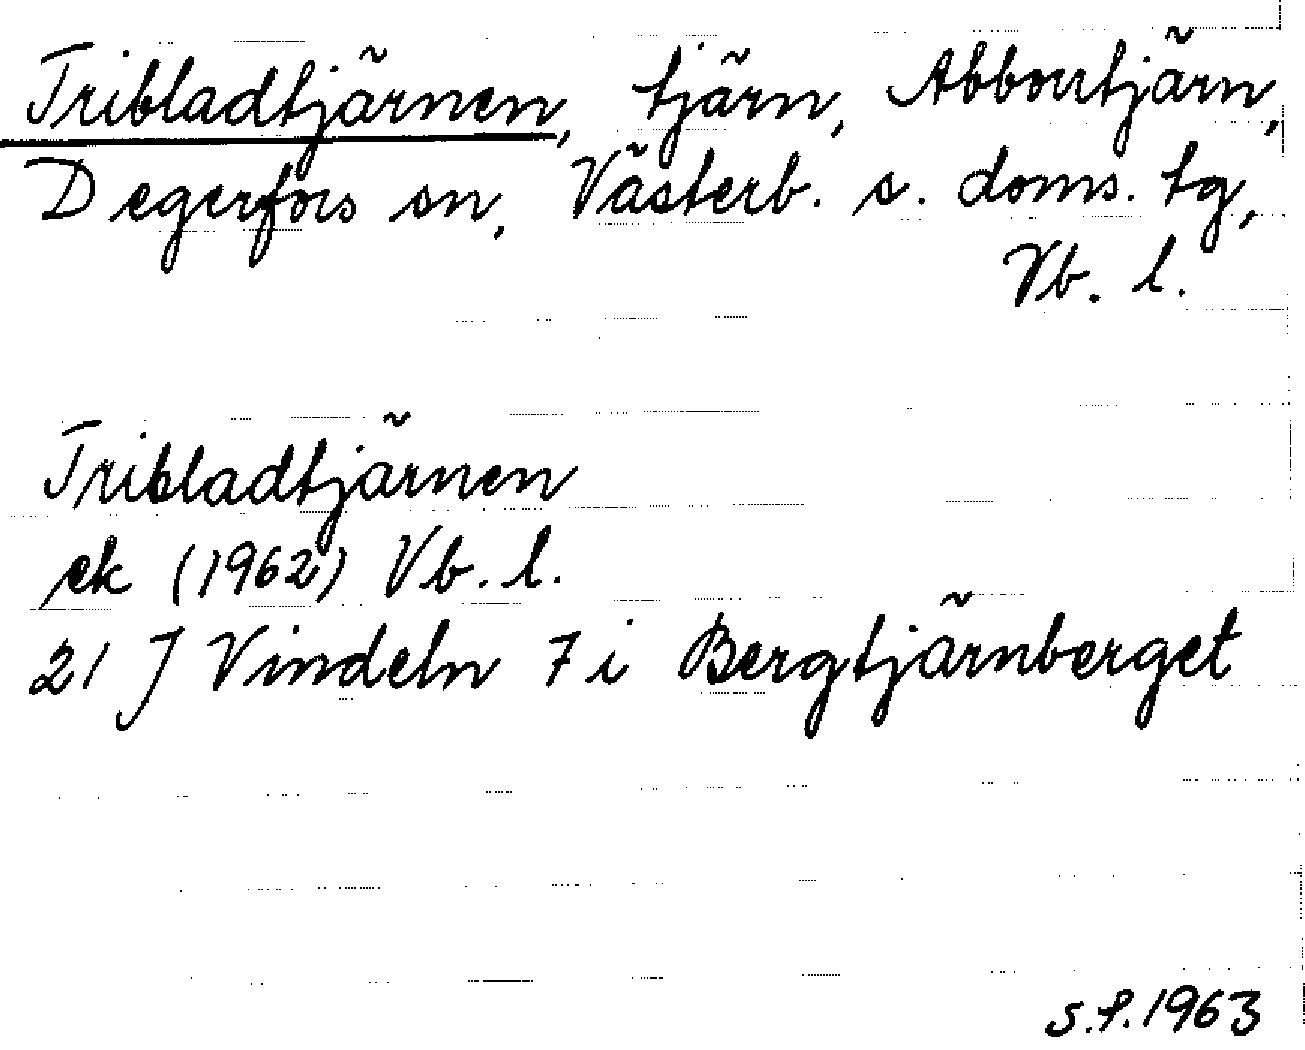 Tribladtjärnen, tjärn, Abborrtjärn,
Degerfors sn, Västerb. s. doms. tg,
Vb. l.
Tribladtjärnen
ek (1962) Vb. l.
21 J Vindeln 7 i Bergtjärnberget
S.P. 1963